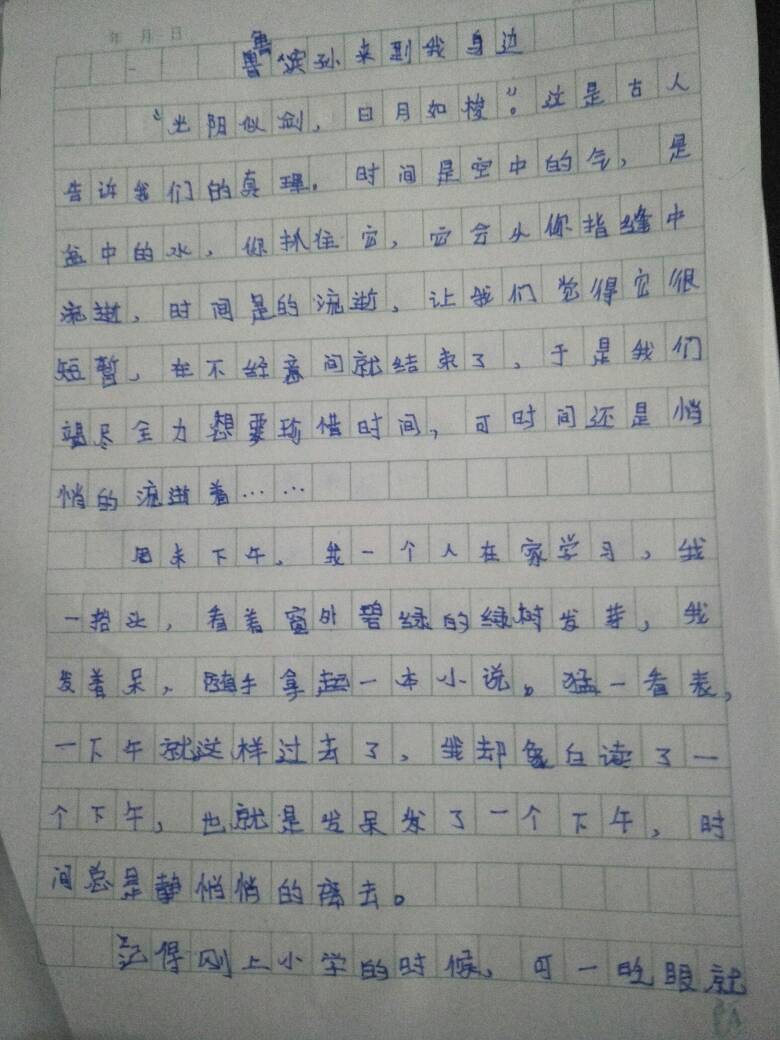 年 月 日
鲁滨孙来到我身边
“光阴似剑，日月如梭”。这是古人
告诉我们的真理。时间是空中的气，是
盆中的水，你抓住它，它会从你指缝中
流逝，时间是的流逝，让我们觉得它很
短暂，在不经意间就结束了，于是我们
竭尽全力想要珍惜时间，可时间还是悄
悄的流逝着……
周末下午，我一个人在家学习，我
一抬头，看着窗外碧绿的绿树发芽，我
发着呆，随手拿起一本小说。猛一看表，
一下午就这样过去了，我却象白读了一
个下午，也就是发呆发了一个下午，时
间总是静悄悄的离去。
记得刚上小学的时候，可一晄眼就